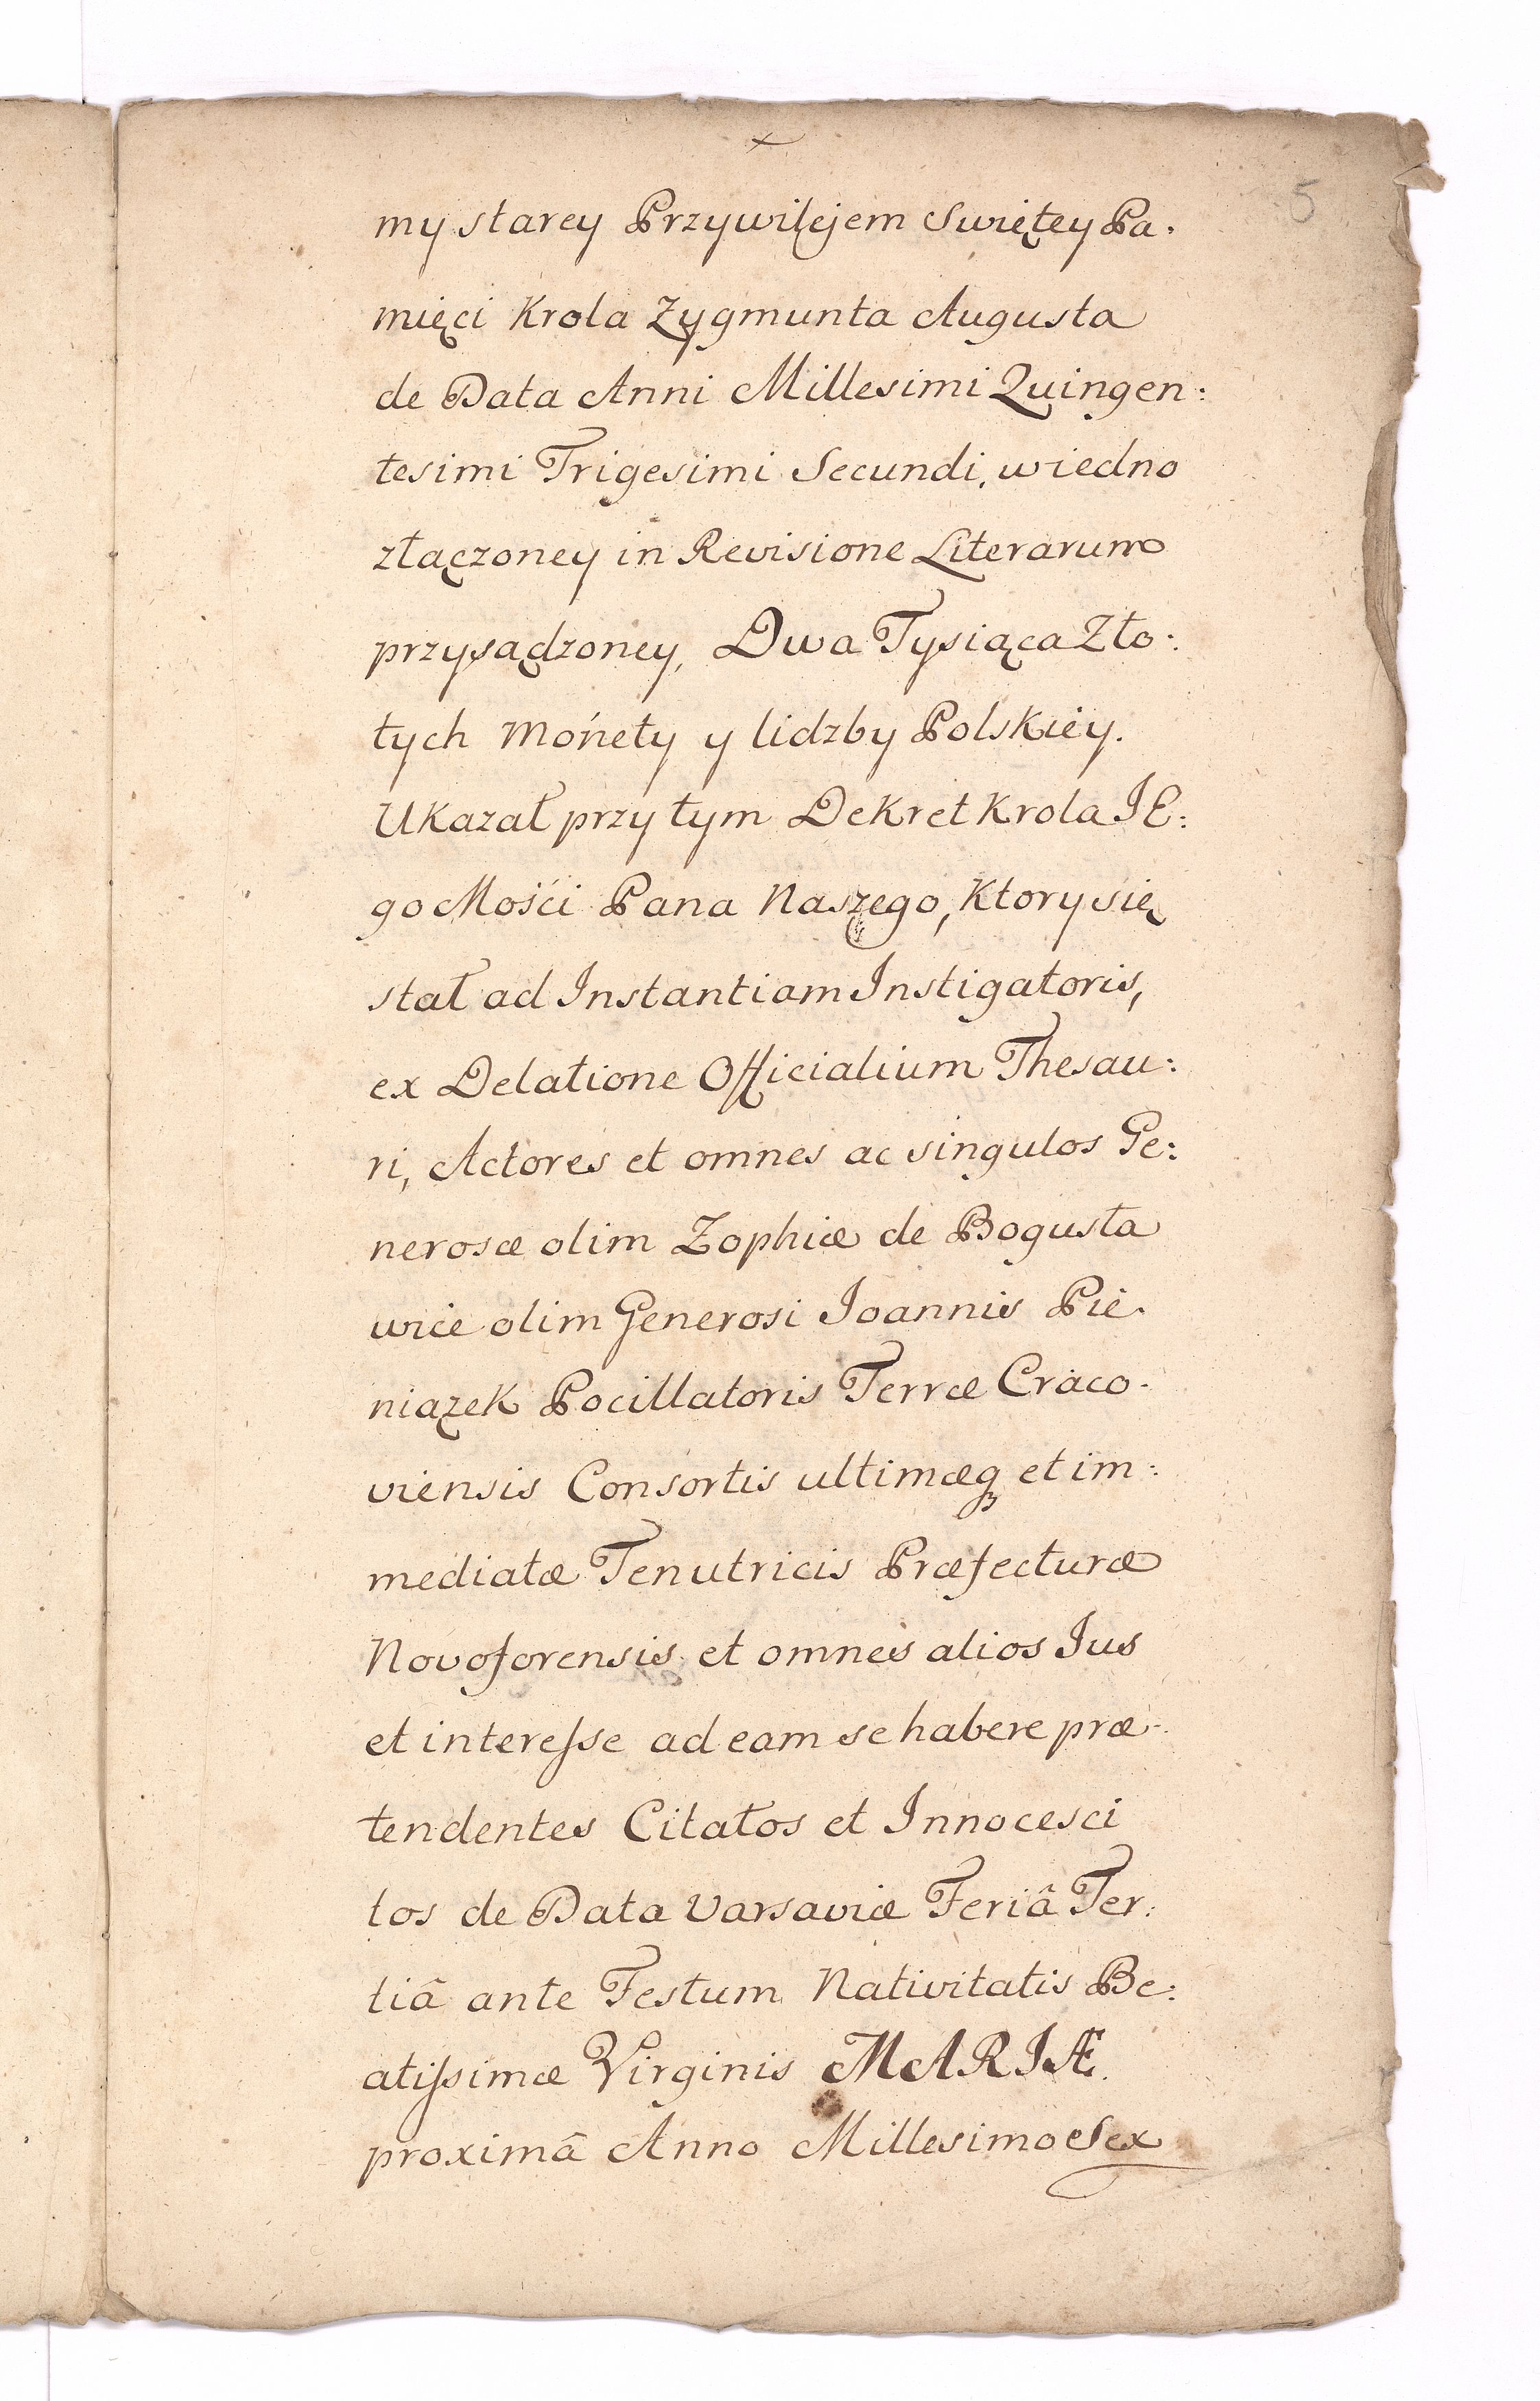 5
my starey Przywilejem Swiętey Pa.
mięci Krola Zygmunta Augusta
de Data Anni Millesimi Quingen:
tesimi Trigesimi Secundi, wiedno
złączoney in Revisione Literarum
przysądzoney, Dwa Tysiąca Zło:
tych Mońety y lidzby Polskiéy.
Ukazał przy tym Dekret Krola JE:
go Mości Pana Naszego, Ktory się
stał ad Instantiam Instigatoris,
ex Delatione Officialium Thesau:
ri, Actores et omnes ac singulos Ge:
nerosæ olim Zophiæ de Bogusła
wice olim Generosi Joannis Pie.
niązek Pocillatoris Terræ Craco-
viensis Consortis ultimæq; et im:
mediatæ Tenutricis Præfecturæ
Novoforensis et omnes alios Jus
et interesse ad eam se habere præ-
tendentes Citatos et Innocesci
tos de Data Varsaviæ Feriâ Ter:
tiâ ante Festum Nativitatis Be:
atissimæ Virginis MARIÆ.
proximâ Anno Millesimo Sex